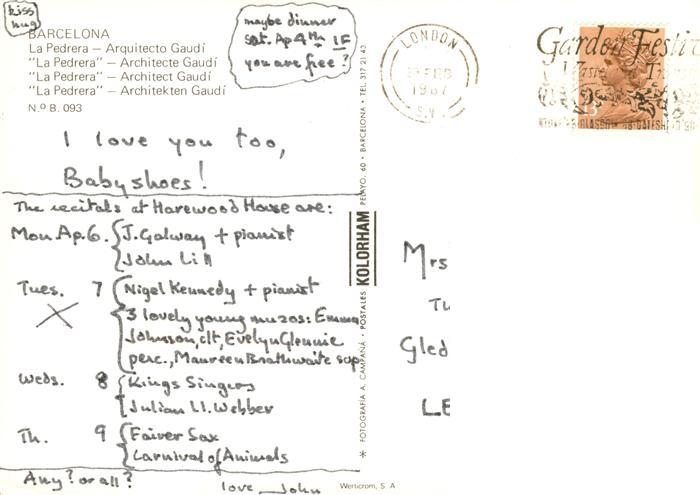 kiss
hug
BARCELONA
La Pedrera – Arquitecto Gaudí
"La Pedrera" – Architecte Gaudí
"La Pedrera" – Architect Gaudí
"La Pedrera" – Architekten Gaudí
N.º B. 093
maybe dinner
Sat. Ap 4th IF
you are free?
I love you too,
Babyshoes!
The recitals at Harewood House are:
Mon. Ap. 6. J. Galway + pianist
John Lill
Tues. 7 Nigel Kennedy + pianist
3 lovely young muzos: Emma
Johnson, clt, Evelyn Glennie
perc., Maureen Brathwaite sop
Weds. 8 Kings Singers
Julian Ll. Webber
Th. 9 Fairer Sax
Carnival of Animals
Any? or all?
love John
* FOTOGRAFIA A. CAMPAÑÁ · POSTALES KOLORHAM PELAYO, 60 · BARCELONA · TEL. 317 21 43
Werticrom, S. A
LONDON
FEB
1987
S.W.
Garden Festi
Mrs
Tu
Gled
LE